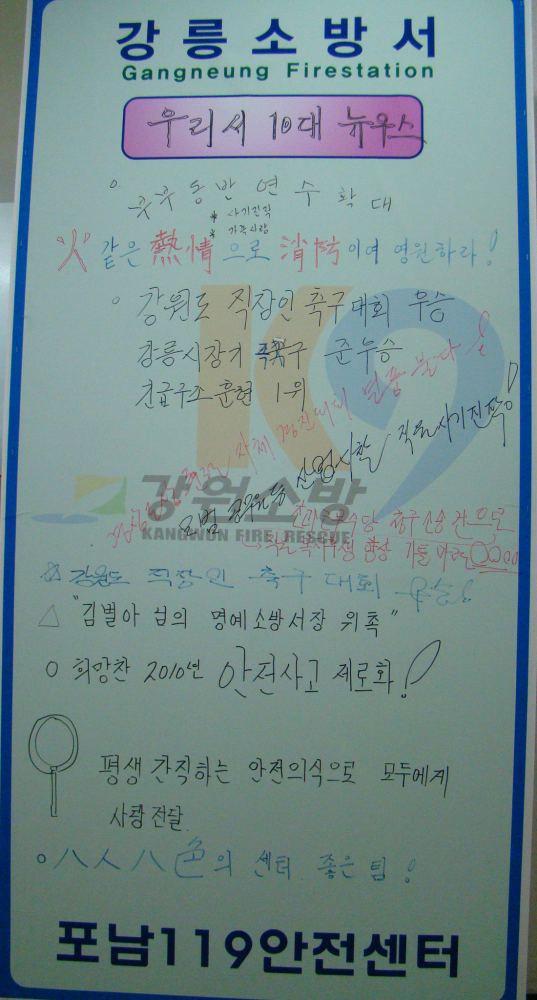 강릉소방서
Gangneung Firestation
우리서 10대 뉴우스
꾸꾸 동반 연수 확대
* 사기진작
* 가족사랑
"人" 같은 熱情으로 消防이여 영원하라!
강원도 직장인 축구대회 우승
강릉시장기 족구 준우승
긴급구조훈련 1위
모범 공무원 산업시찰 직원사기진작!
강원소방
KANGWON FIRE RESCUE
☆ 강원도 직장인 축구대회 우승!
△ "김별아 님의 명예소방서장 위촉"
○ 희망찬 2010년 안전사고 제로화!
평생 간직하는 안전의식으로 모두에게
사랑전달
○ 八人八色의 센터 좋은 팀!
포남119안전센터